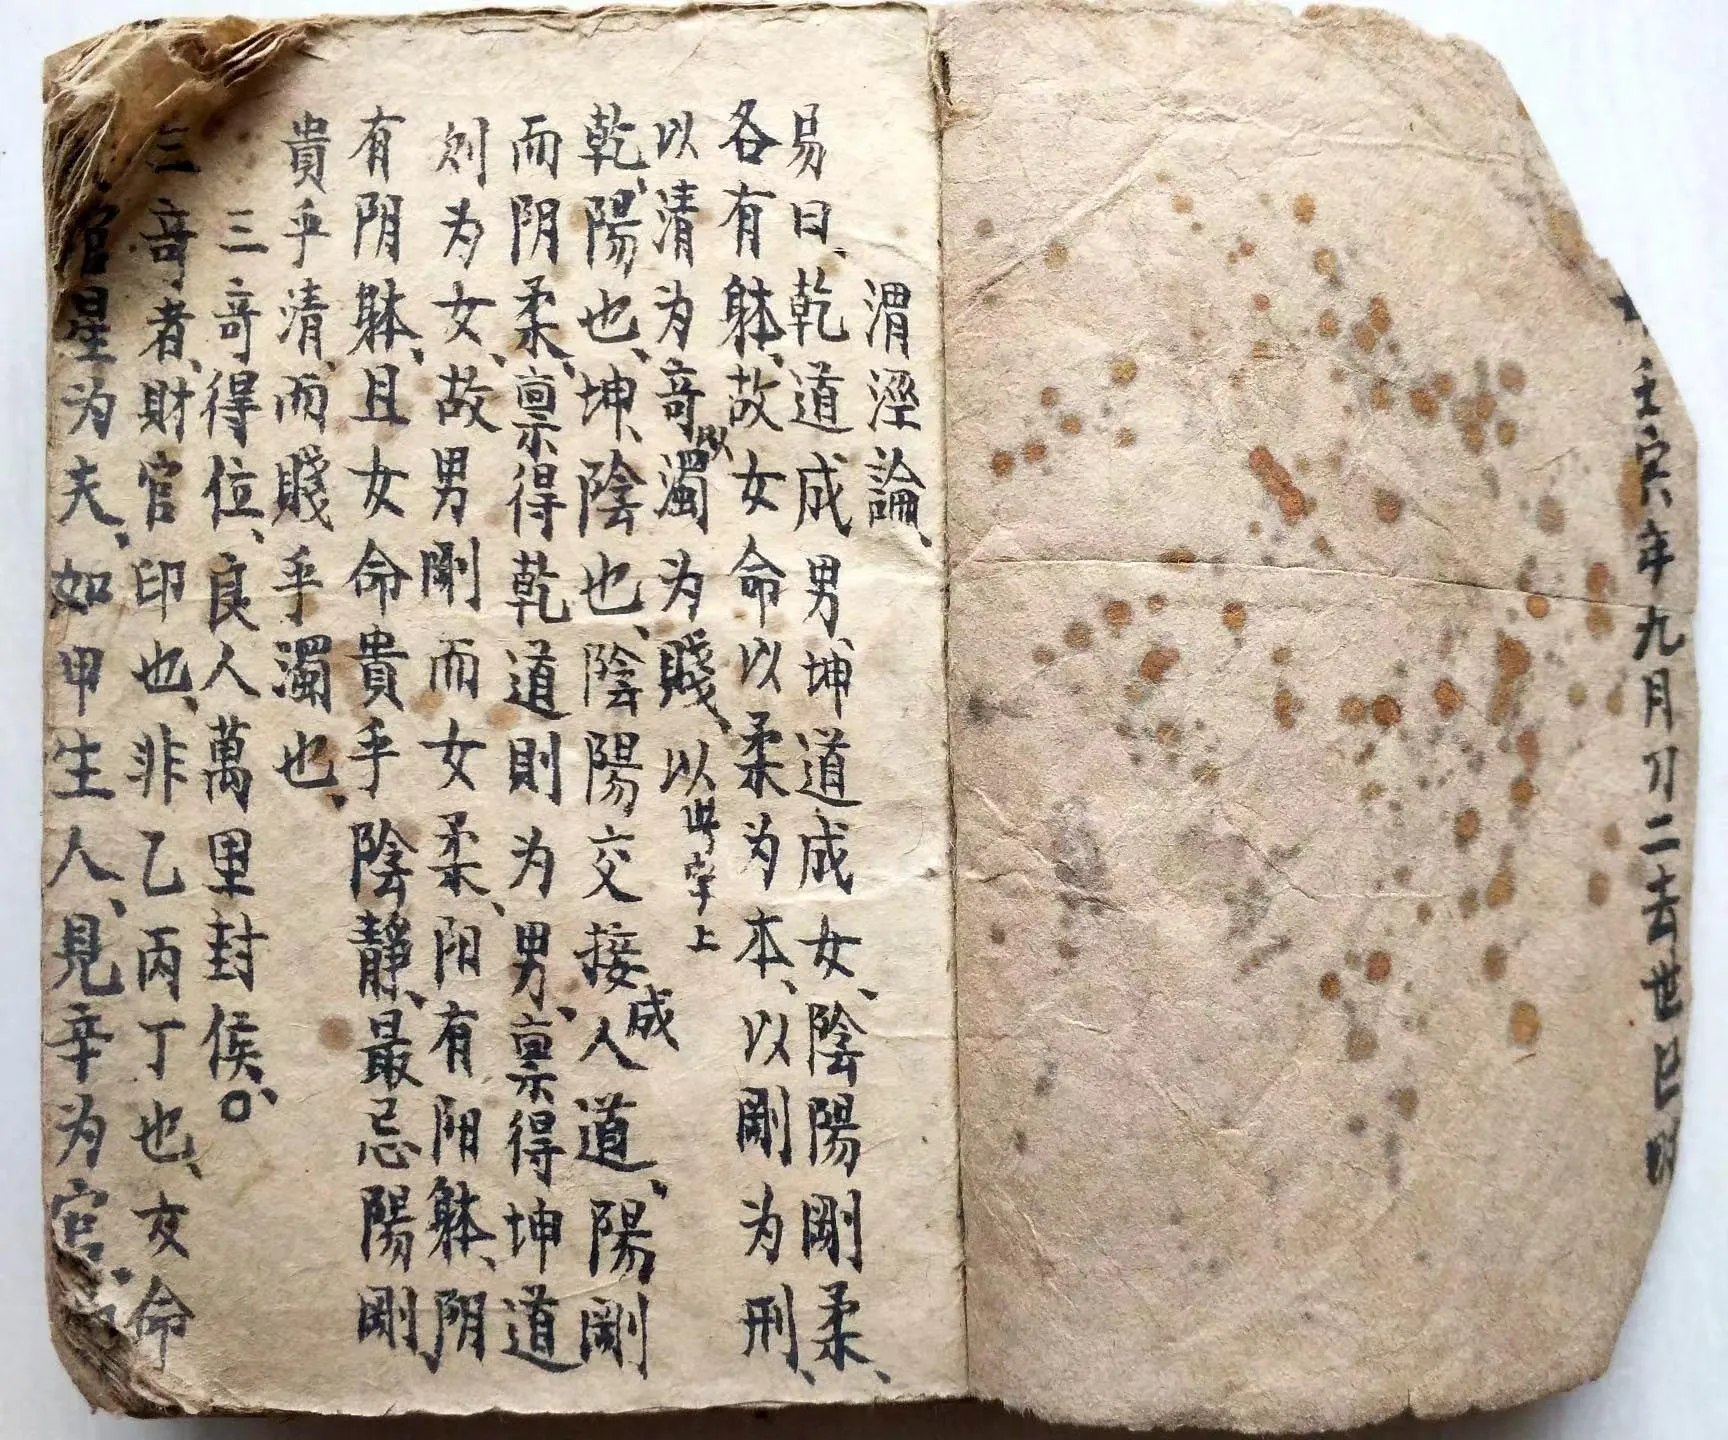 壬寅年九月刀二去世巳时
渭涇論、
易曰、乾道成男、坤道成女、陰陽剛柔、
各有躰、故女命以柔为本、以剛为刑、
以清为竒以濁为賤、以此字上
乾、陽也、坤、陰也、陰陽交接成人道、陽剛
而阴柔、禀得乾道則为男、禀得坤道
则为女、故男剛而女柔、阳有阳躰、阴
有阴躰、且女命貴乎陰靜、最忌陽剛
貴乎清、而賤乎濁也、
三竒得位、良人萬里封侯、○
三竒者、財官印也、非乙丙丁也、女命
官星为夫、如甲生人、見辛为官、